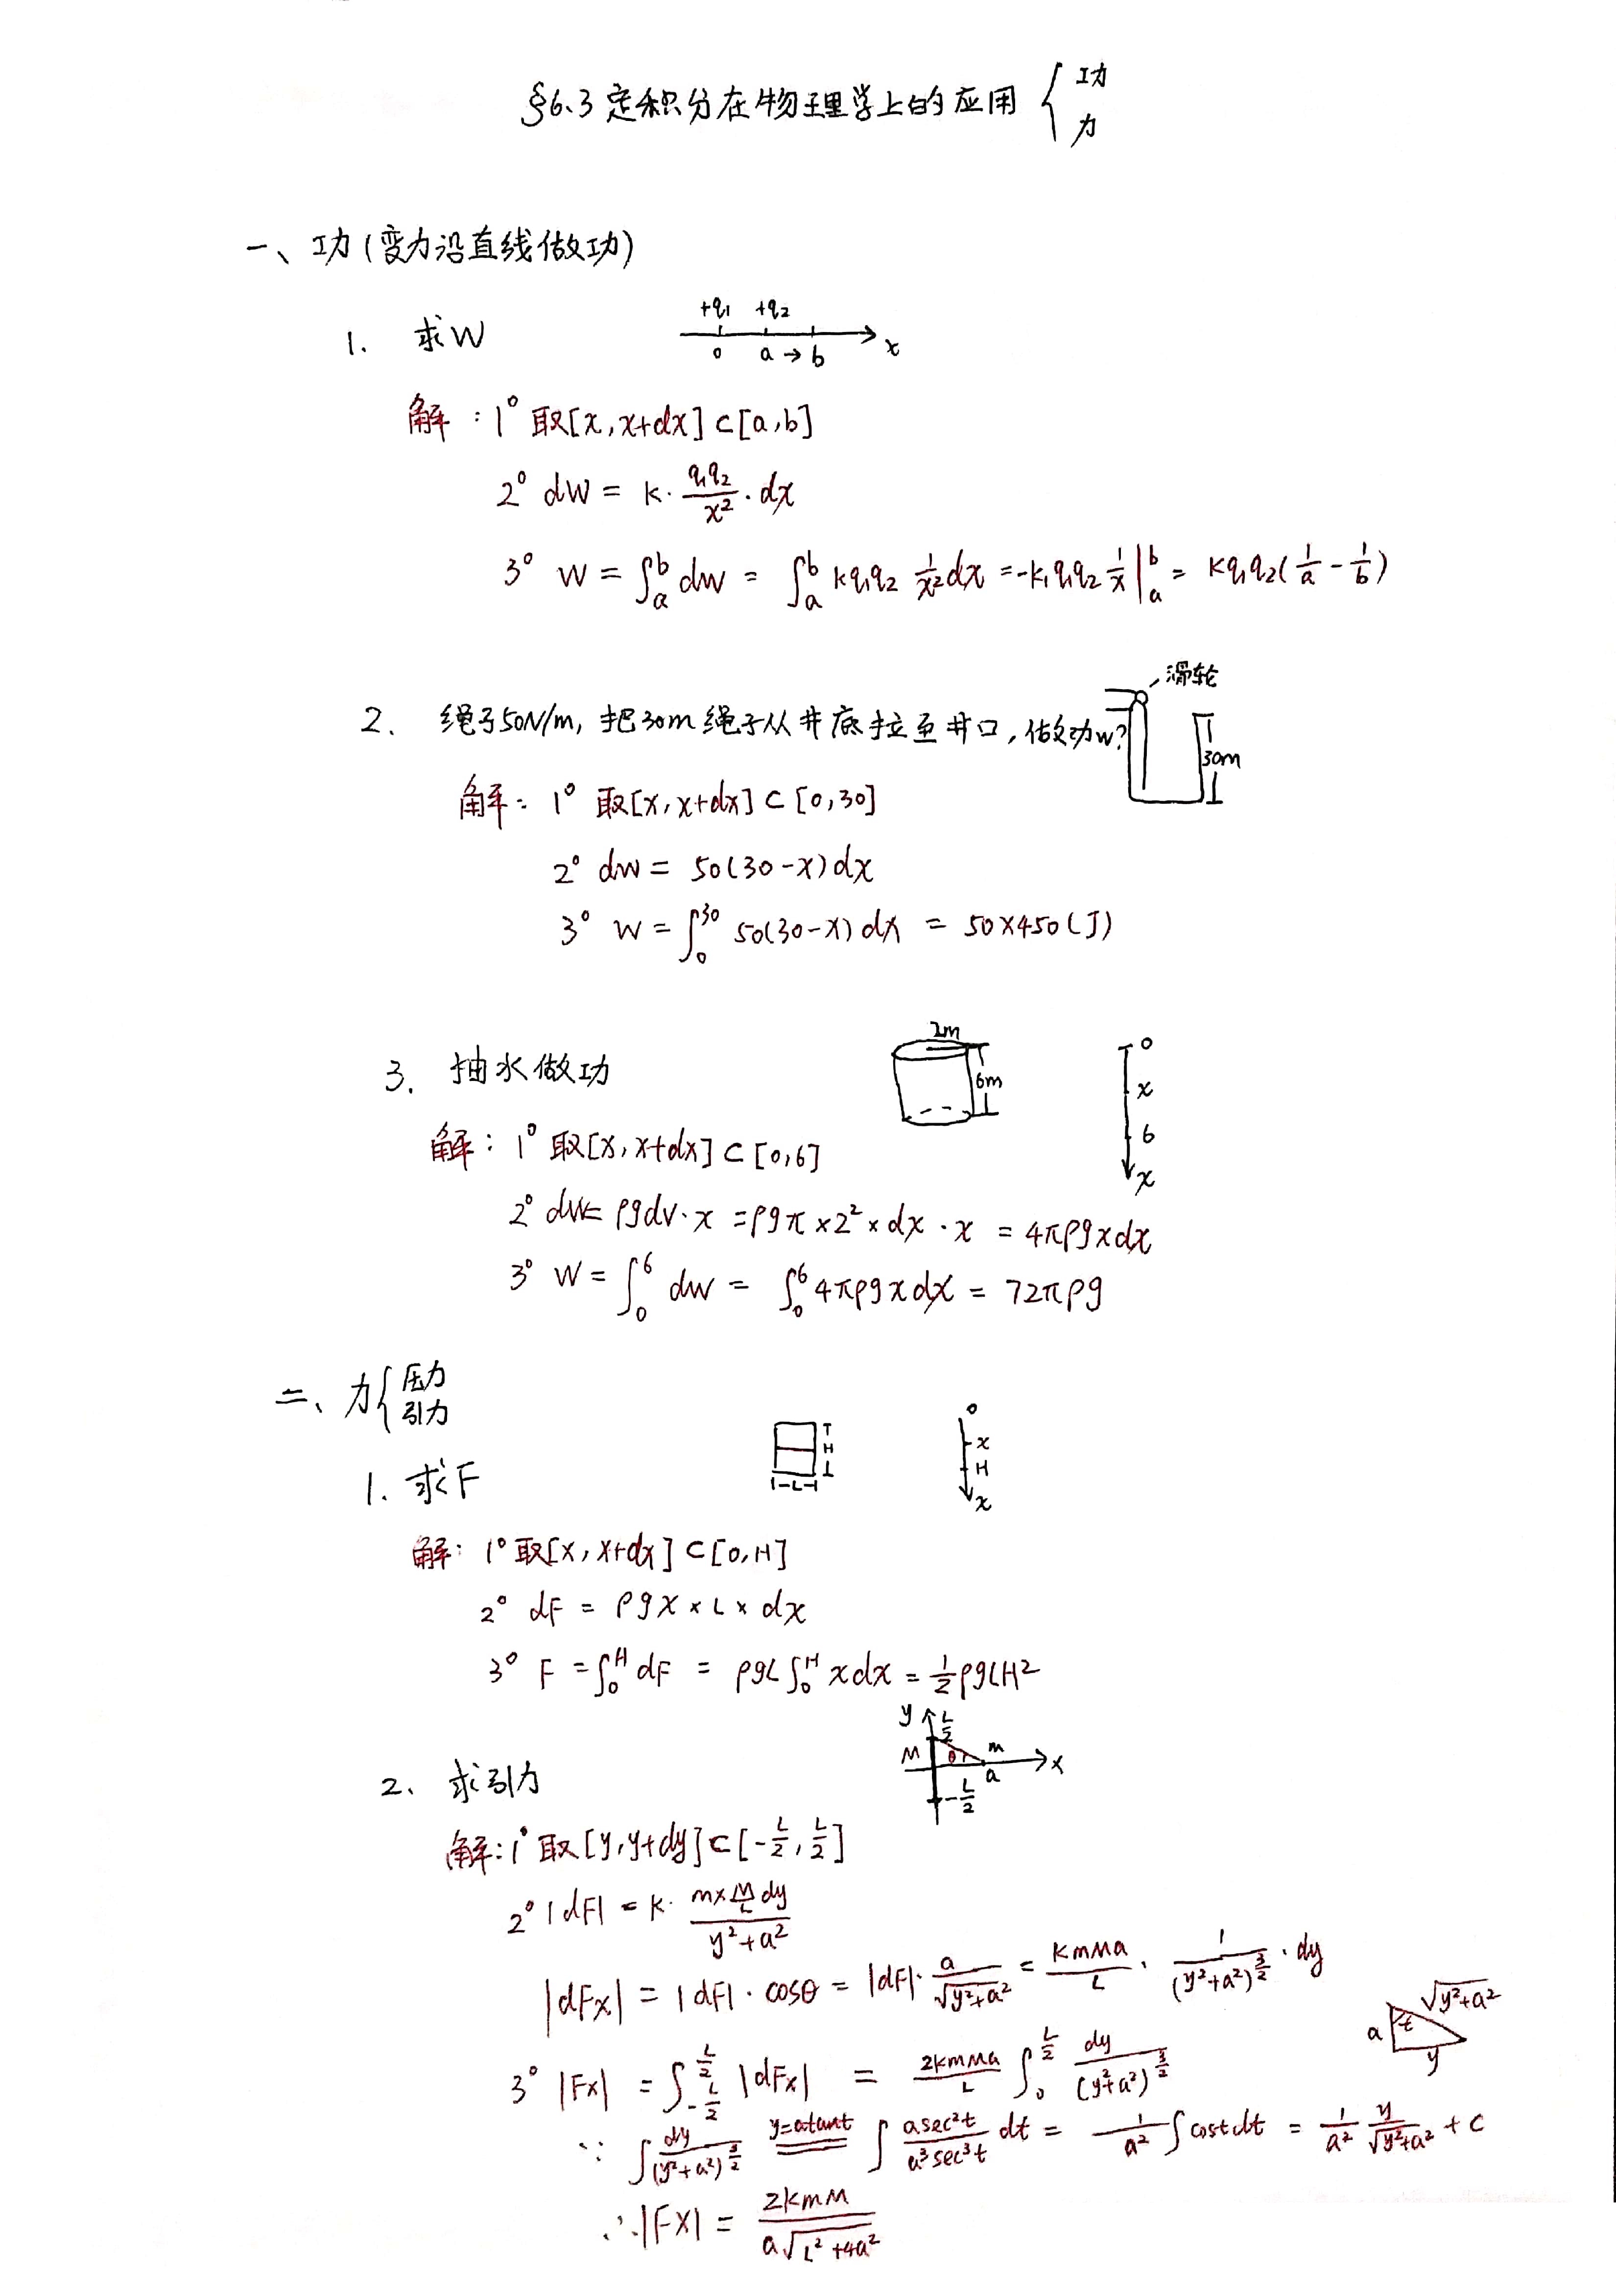 §6.3 定积分在物理学上的应用 { 功 力
一、功(变力沿直线做功)
1. 求W
+q₁ +q₂
0 a→b x
解:1° 取[x, x+dx]⊂[a,b]
2° dW = k·\frac{q₁q₂}{x²}·dx
3° W = ∫_a^b dw = ∫_a^b kq₁q₂ \frac{1}{x²}dx = -k₁q₁q₂ \frac{1}{x}|_a^b = kq₁q₂(\frac{1}{a} - \frac{1}{b})
滑轮
2. 绳子50N/m, 把30m绳子从井底拉至井口, 做功w?
30m
解: 1° 取[x, x+dx]⊂[0,30]
2° dw = 50(30-x)dx
3° W = ∫_0^{30} 50(30-x)dx = 50×450(J)
3. 抽水做功
2m
6m
0
x
6
x
解: 1° 取[x, x+dx]⊂[0,6]
2° dW= ρgdv·x = ρgπ×2²×dx·x = 4πρgxdx
3° W = ∫_0^6 dw = ∫_0^6 4πρgxdx = 72πρg
二、力{ 压力 引力
1. 求F
H
L
0
x
H
x
解: 1° 取[x, x+dx]⊂[0,H]
2° dF = ρgx×L×dx
3° F = ∫_0^H dF = ρgL∫_0^H xdx = \frac{1}{2}ρgLH²
2. 求引力
y \frac{L}{2}
M θ m
a x
-\frac{L}{2}
解:1° 取[y, y+dy]⊂[-\frac{L}{2}, \frac{L}{2}]
2° |dF| = k·\frac{m×\frac{M}{L}dy}{y²+a²}
|dFx| = |dF|·cosθ = |dF|·\frac{a}{√(y²+a²)} = \frac{kmMa}{L}·\frac{1}{(y²+a²)^{\frac{3}{2}}}·dy
√(y²+a²)
a t
y
3° |Fx| = ∫_{-\frac{L}{2}}^{\frac{L}{2}} |dFx| = \frac{2kmMa}{L}∫_0^{\frac{L}{2}} \frac{dy}{(y²+a²)^{\frac{3}{2}}}
∵ ∫\frac{dy}{(y²+a²)^{\frac{3}{2}}} \overset{y=atant}{=} ∫\frac{asec²t}{a³sec³t}dt = \frac{1}{a²}∫costdt = \frac{1}{a²}\frac{y}{√(y²+a²)} + C
∴|Fx| = \frac{2kmM}{a√(L²+4a²)}